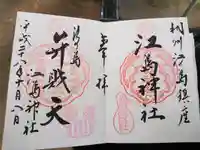 相州江島鎮座
江島神社
奉拝
江島
弁財天
平成二十八年十月八日
江島神社